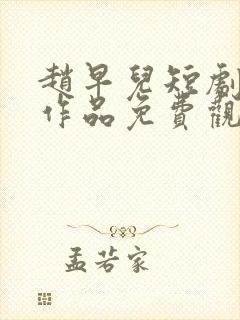 趙早兒短劇
作品免費觀
孟若家